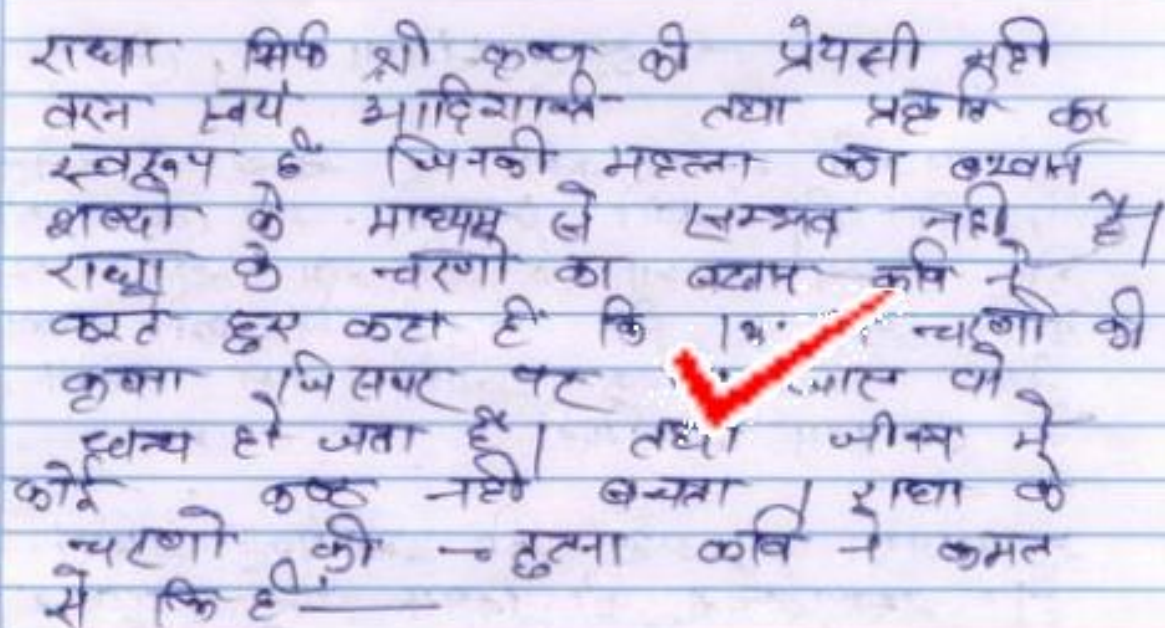 राधा सिर्फ श्री कृष्ण की प्रेयसी नही
वरन स्वयं आदिशक्ति तथा प्रकृति का
स्वरूप है जिनकी महत्ता का बखान
शब्दो के माध्यम से सम्भव नही है।
राधा के चरणो का बखान कवि ने
करते हुए कहा है कि चरणो की
कृपा जिसपर पर जाए वो
धन्य हो जता है। तथा जीवन मे
कोई कष्ठ नही बचता। राधा के
चरणो की तुलना कवि ने कमल
से कि है